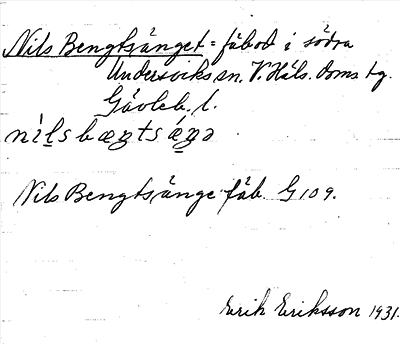 Nils Bengtsänget = fäbod i södra
Undersviks sn. V. Häls. doms tg.
Gävleb. l.
nìlsbæŋtsǽŋə
Nils Bengtsänge fäb. G 109.
Erik Eriksson 1931.